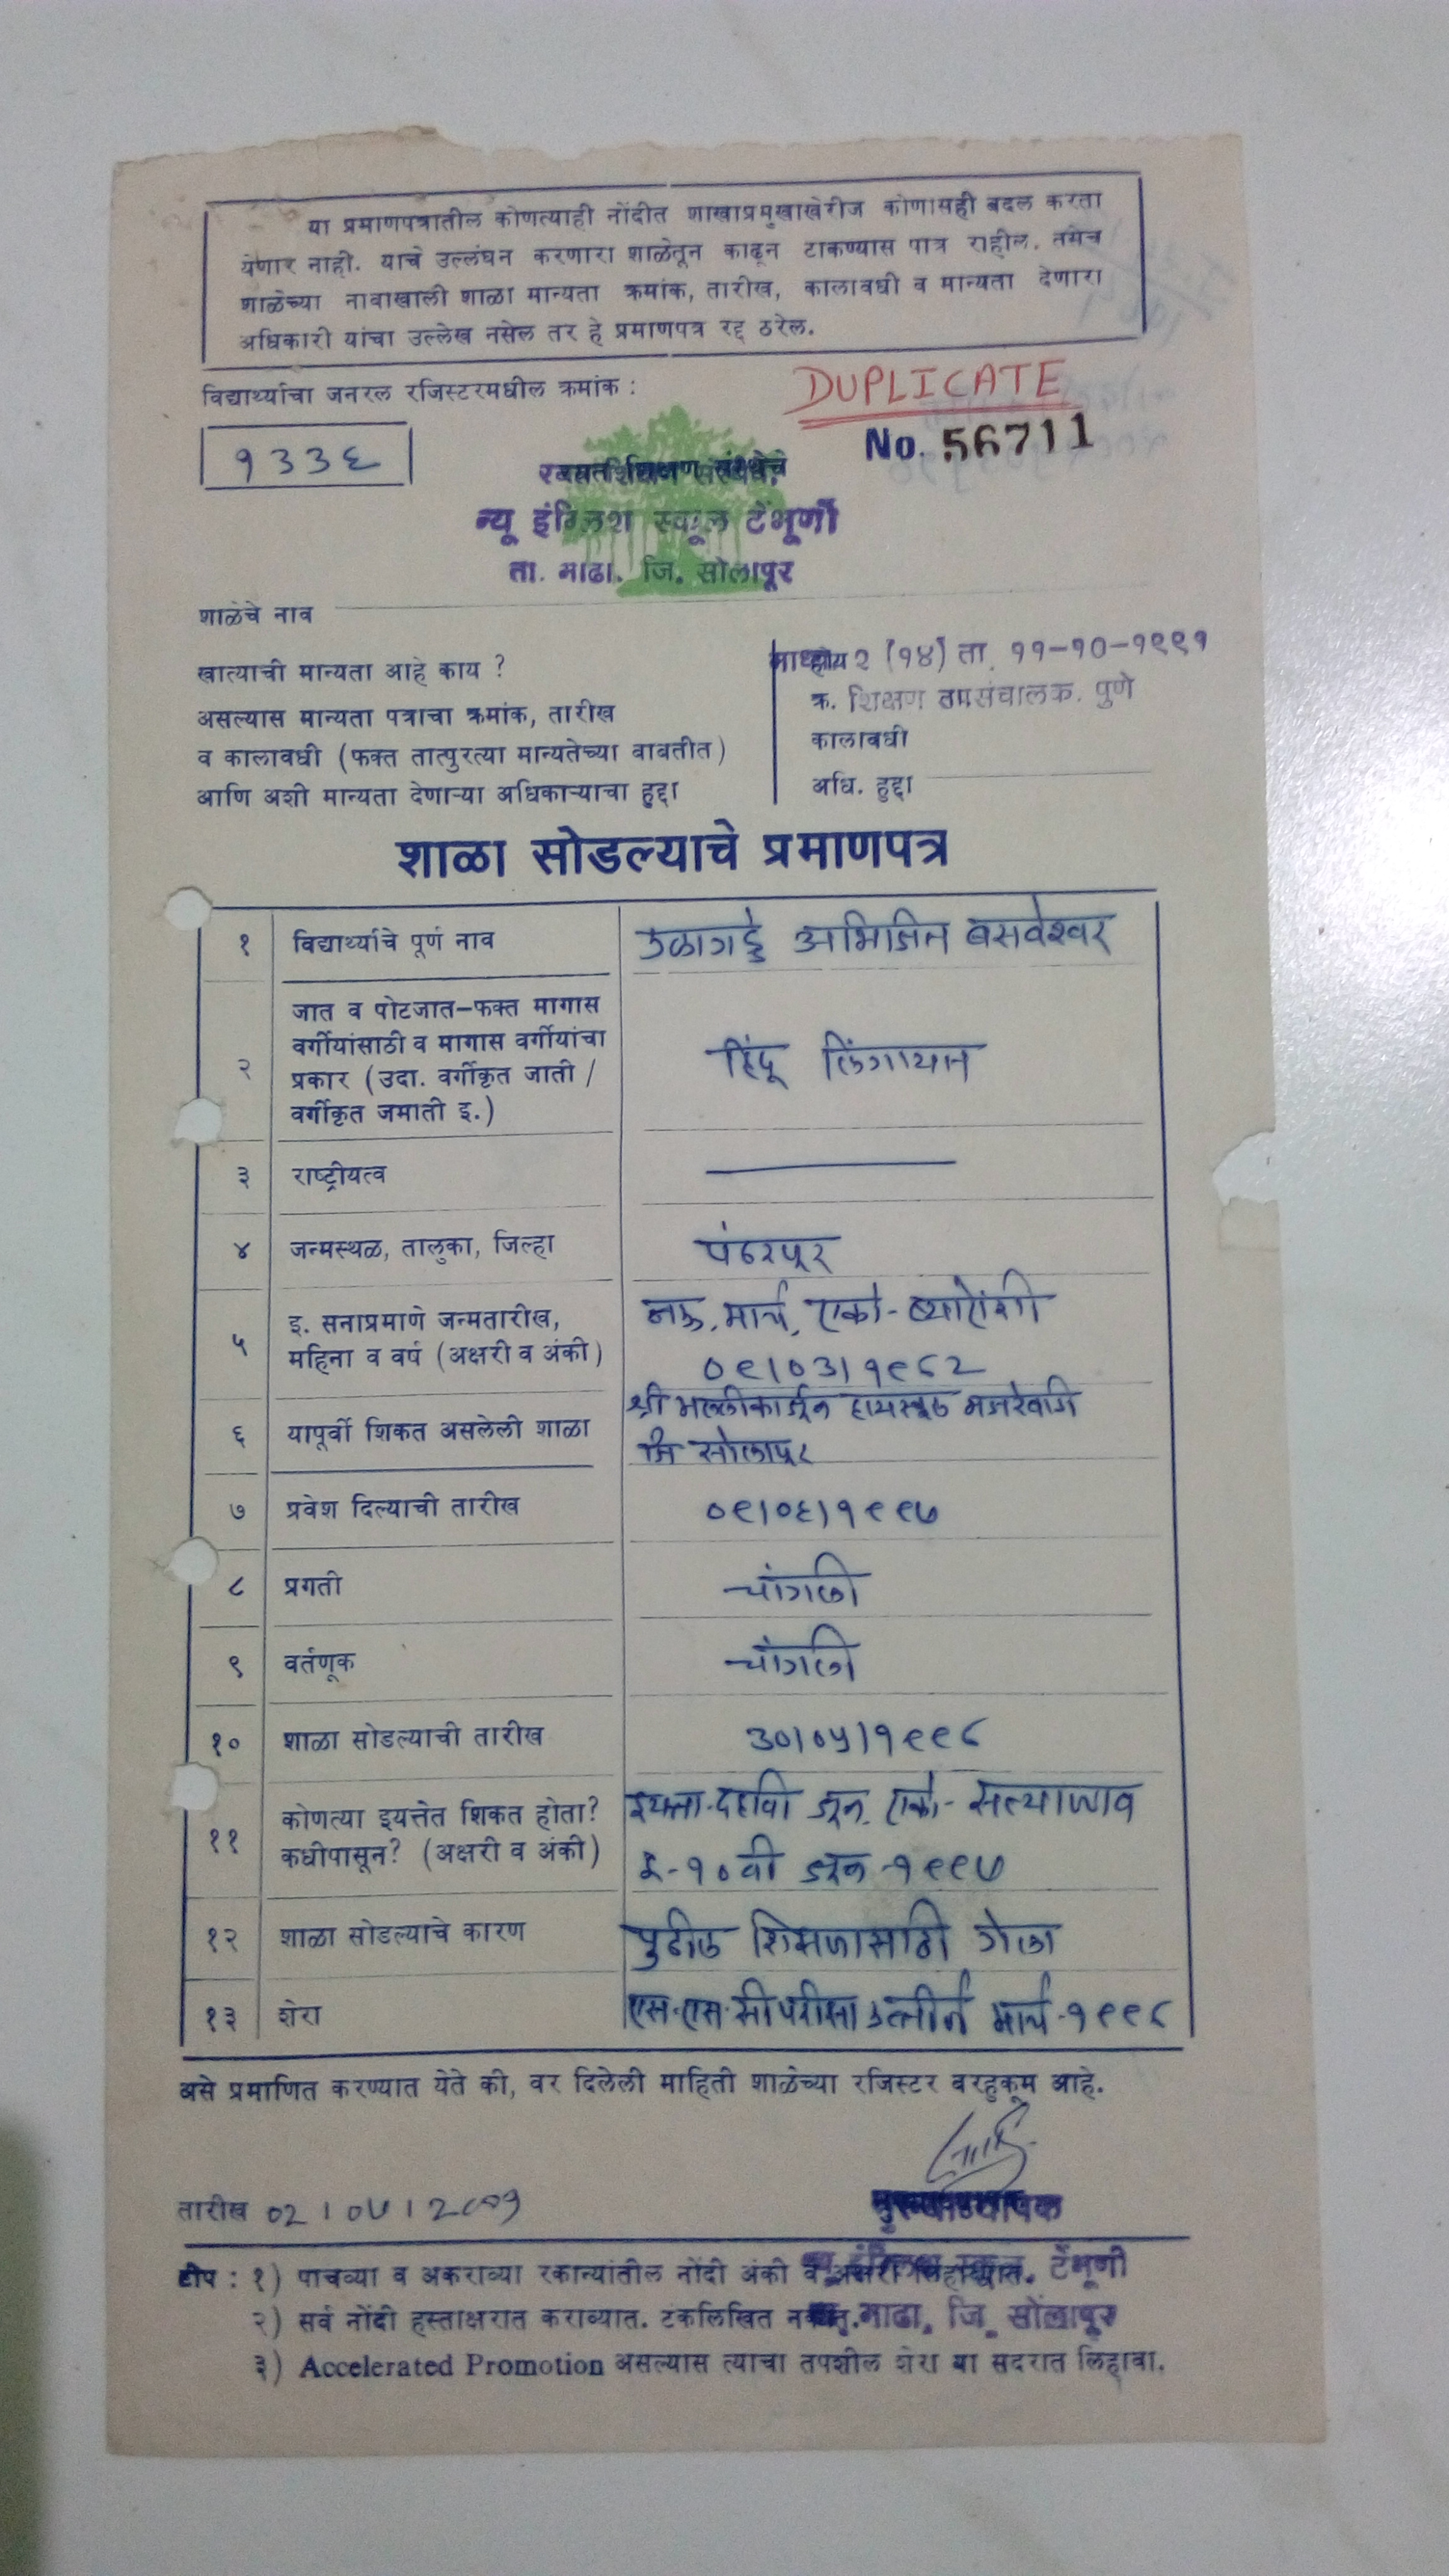 या प्रमाणपत्रातील कोणत्याही नोंदीत शाखाप्रमुखाखेरीज कोणासही बदल करता
येणार नाही. याचे उल्लंघन करणारा शाळेतून काढून टाकण्यास पात्र राहील. तसेच
शाळेच्या नावाखाली शाळा मान्यता क्रमांक, तारीख, कालावधी व मान्यता देणारा
अधिकारी यांचा उल्लेख नसेल तर हे प्रमाणपत्र रद्द ठरेल.
विद्यार्थ्याचा जनरल रजिस्टरमधील क्रमांक :
DUPLICATE
१३३६
No. 56711
रयत शिक्षण संस्थेचे
न्यू इंग्लिश स्कूल टेंभूर्णी
ता. माढा. जि. सोलापूर
शाळेचे नाव
खात्याची मान्यता आहे काय ?
असल्यास मान्यता पत्राचा क्रमांक, तारीख
व कालावधी (फक्त तात्पुरत्या मान्यतेच्या बाबतीत)
आणि अशी मान्यता देणाऱ्या अधिकाऱ्याचा हुद्दा
२ (१४) ता. ११-१०-१९९१
क्र. शिक्षण उपसंचालक. पुणे
कालावधी
अधि. हुद्दा
शाळा सोडल्याचे प्रमाणपत्र
१ विद्यार्थ्याचे पूर्ण नाव उळागड्डे अभिजित बसवेश्वर
२ जात व पोटजात-फक्त मागास
वर्गीयांसाठी व मागास वर्गीयांचा
प्रकार (उदा. वर्गीकृत जाती /
वर्गीकृत जमाती इ.)
हिंदू लिंगायत
३ राष्ट्रीयत्व
४ जन्मस्थळ, तालुका, जिल्हा पंढरपूर
५ इ. सनाप्रमाणे जन्मतारीख,
महिना व वर्ष (अक्षरी व अंकी)
नऊ, मार्च, एको- ब्याऐंशी
०९/०३/१९८२
६ यापूर्वी शिकत असलेली शाळा
श्री मल्लीकार्जून हायस्कूल मजरेवाडी
जि सोलापूर
७ प्रवेश दिल्याची तारीख ०९/०६/१९९७
८ प्रगती चांगली
९ वर्तणूक चांगली
१० शाळा सोडल्याची तारीख ३०/०५/१९९८
११ कोणत्या इयत्तेत शिकत होता?
कधीपासून? (अक्षरी व अंकी)
इयत्ता-दहावी जून, एको- सत्याण्णव
इ-१०वी जून-१९९७
१२ शाळा सोडल्याचे कारण पुढील शिक्षणासाठी गेला
१३ शेरा एस.एस.सी परीक्षा उत्तीर्ण मार्च-१९९८
असे प्रमाणित करण्यात येते की, वर दिलेली माहिती शाळेच्या रजिस्टर बरहुकूम आहे.
तारीख ०२/०७/२००३
मुख्याध्यापक
न्यू इंग्लिश स्कूल. टेंभूर्णी
ता. माढा, जि. सोलापूर
टीप : १) पाचव्या व अकराव्या रकान्यांतील नोंदी अंकी व अक्षरी लिहाव्यात.
२) सर्व नोंदी हस्ताक्षरात कराव्यात. टंकलिखित नसाव्यात.
३) Accelerated Promotion असल्यास त्याचा तपशील शेरा या सदरात लिहावा.